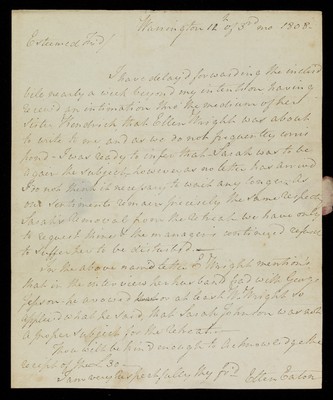 Warrington 12th of 3rd mo 1808.
Esteemed Frd/
I have delay'd forwarding the inclos'd
bill nearly a week beyond my intention having
receiv'd an intimation thro the medium of her
Sister that Ellen Wright was about
to write to me, and as we do not frequently corres
pond - I was ready to infer that Sarah was to be
again the subject, however as no letter has arrived
I do not think it necessary to wait any longer, as
our sentiments remain precisely the same respectg
Sarahs removal from the retreat we have only
to request thine & the manager's continued refusal
to suffer her to be disturbed.
In the above nam'd letter E Wright mention's
that in the interview her husband had with George
Jepson he avowed or at least W. Wright so
applied what he said, that Sarah Johnson was not
a proper subject for the retreat.
Thou wilt be kind enough to acknowledge the
receipt of 30 -
I am very respectfully thy frd
Ellen Eaton